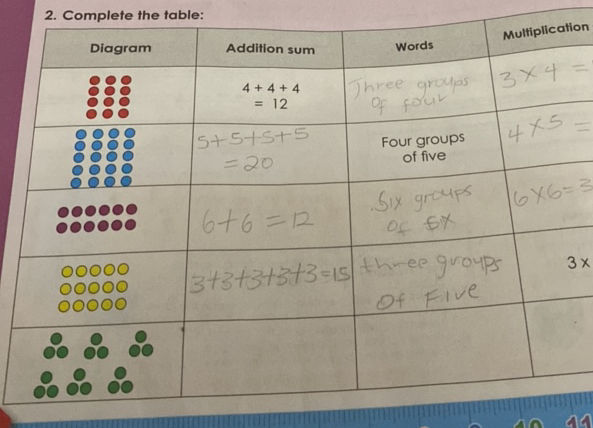 2. Complete the table:
Diagram Addition sum Words Multiplication
4 + 4 + 4 Three groups 3 × 4 =
= 12 of four
5+5+5+5 Four groups 4 × 5 =
= 20 of five
6+6 = 12 Six groups 6×6=3
of six
3+3+3+3+3=15 three groups 3 ×
Of Five
10 11